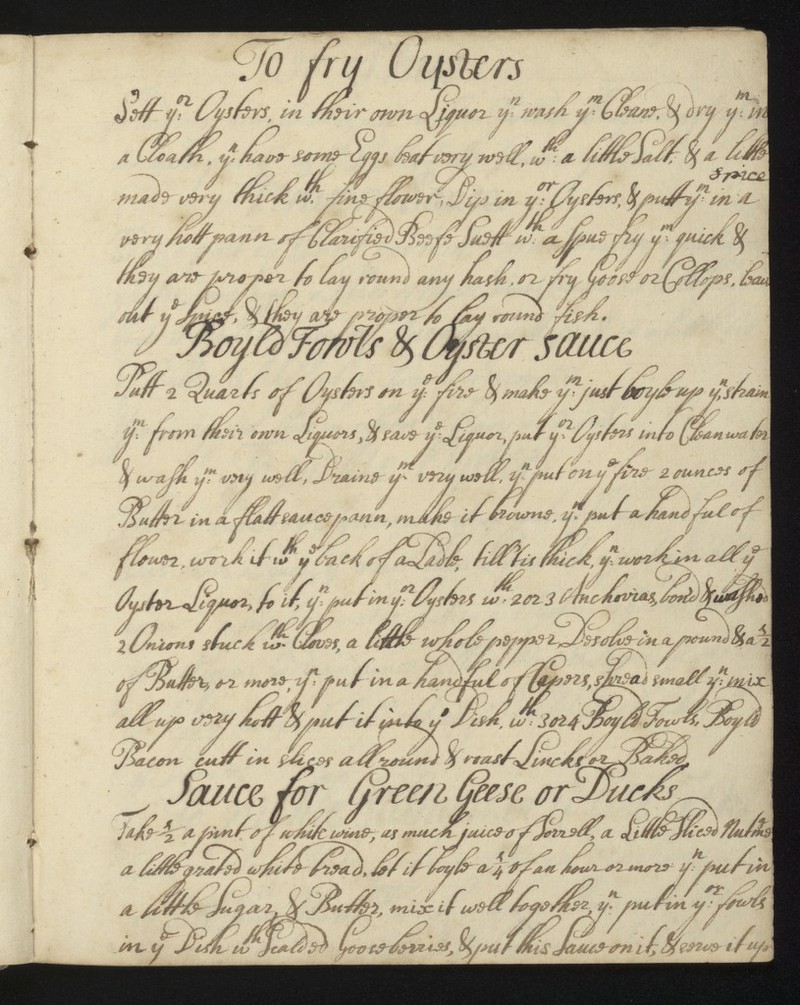 To fry Oysters
Sett yor Oysters, in their own Liquor yn wash ym Cleane, & dry ym in
a Cloath, yn have some Eggs beat very well, wth a little Salt, & a little
spice
made very thick wth fine flower, Dip in yor Oysters, & putt ym in a
very hott pann of Clarified Beefe Suett wth a spue fry ym quick &
they are proper to lay round any hash, or fry Goose or Collops, leave
out ye spice, & they are proper to lay round fish.
Boyld Fowls & Oyster sauce
Putt 2 Quarts of Oysters on ye fire & make ym just boyle up yn strain
ym from their own Liquors, & save ye Liquor, put yor Oysters into Clean water
& wash ym very well, Draine ym very well, yn put on ye fire 2 ounces of
Butter in a flatt saucepann, make it browne, yn put a handful of
flower, work it wth ye back of a Ladle, till tis thick, yn work in all ye
Oyster Liquor, to it, yn put in yor Oysters wth 2 or 3 Anchovias, bond & washed
2 Onions stuck wth Cloves, a little whole pepper, Desolve in a pound & a 1/2
of Butter, or more, yn put in a handful of Capers, shread small yn mix
all up very hott & put it into ye Dish, wth 3 or 4 Boyld Fowls, Boyld
Bacon cutt in slices all round & roast Lincks or Baked
Sauce for Green Geese or Ducks
Take 1/2 a pint of white wine, as much juice of Sorrell, a Little Sliced Nutmeg
a little grated white bread, let it boyle a 1/4 of an hour or more yn put in
a little Sugar, & Butter, mix it well together, yn put in yor fowls
in ye Dish wth Scalded Gooseberries, & put this Sauce on it, & serve it up